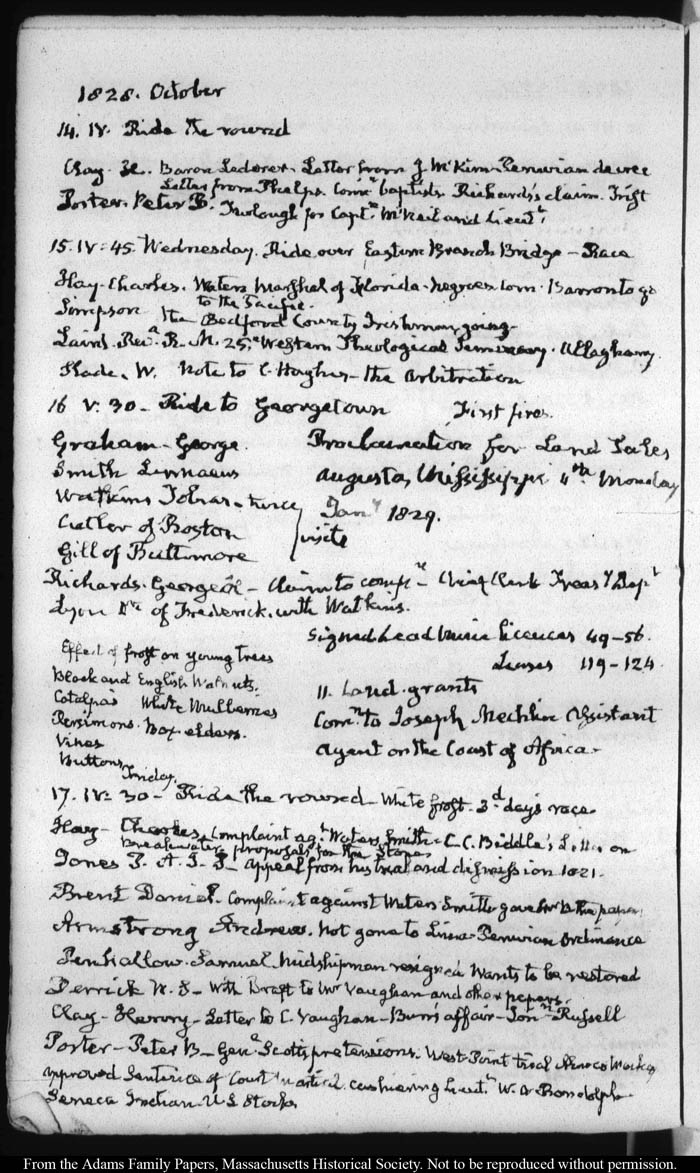 1828. October
14. IV. Ride the round
Clay. H. Baron Lederer. Letter from J McKim. Peruvian decree
Letter from Phelps. Comn baptists Richards's claim. Trist
Porter. Peter B. Furlough for Captn McNeil and Lieutt
15. IV:45. Wednesday. Ride over Eastern Branch Bridge — Race
Hay. Charles. Waters Marshal of Florida. Negroes Barron to go
to the Pacific.
Simpson the Bedford County Irishman, going.
Laird. Revd R. M. 25. Western Theological Seminary. Alleghany.
Slade. W. Note to C. Hughes — the Arbitration
16 V. 30 — Ride to Georgetown First fires.
Graham — George. Proclamation for Land Sales
Smith Linnaeus Augusta, Mississippi 4th Monday
Watkins Tobias — twice Jany 1829.
Cutler of Boston visits
Gill of Baltimore
Richards. George — Claim to Chief Clerk Treasy Dept
Lyon of Frederick. with Watkins.
Signed Lead mine licences 49–56.
Effect of frost on young trees
Leases 119–124.
Black and English Walnuts.
11. Land. grants
Catalpas White Mulberries
Comn to Joseph Mechlin Assistant
Persimons. Box elders.
Agent on the Coast of Africa.
Vines
Buttons
Friday.
17. IV: 30 — Ride the round — White frost. 3d day's race
Hay — Charles. Complaint agt Waters Smith — C. C. Biddle's Letter on
Breakwater proposals for the Stone
Jones R. A. — Appeal from his trial and dismission 1821.
Brent Daniel. Complaint against Waters Smith gave him the papers
Armstrong Andrew. Not gone to Lima — Peruvian Ordinance
Penhallow. Samuel. Midshipman resigned wants to be restored
Derrick W. S — With Draft to Mr Vaughan and other papers.
Clay — Henry — Letter to C. Vaughan — Burn's affair — Jonn Russell
Porter — Peter B — Genl Scott's pretensions. West-Point trial
Approved Sentence of Court Martial. cashiering Lieutt W. B Randolph
Seneca Indian U S Stocks
From the Adams Family Papers, Massachusetts Historical Society. Not to be reproduced without permission.